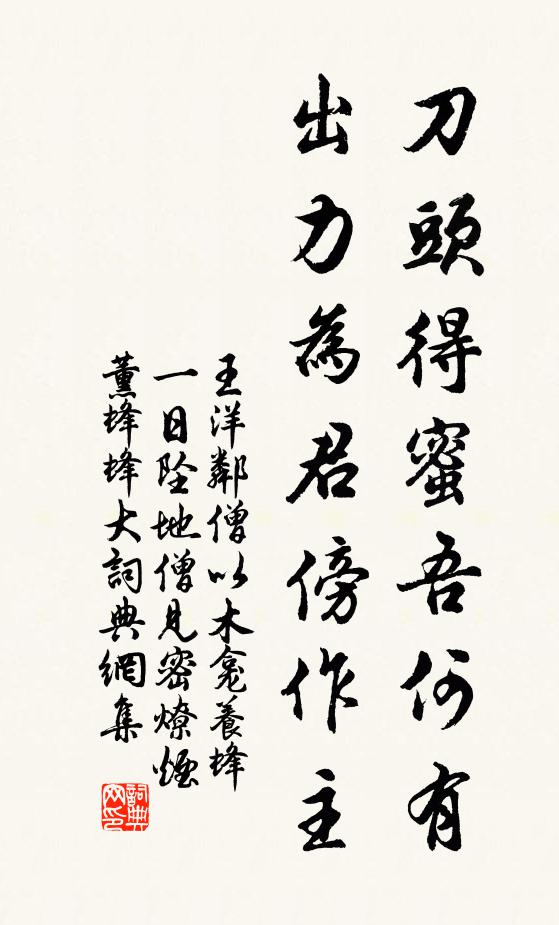 刀頭得蜜吾何有
出力為君傍作主
王洋鄰僧以木龕養蜂
一日墜地僧見密燎煙
薰蜂蜂大詞典網集
詞典
网印